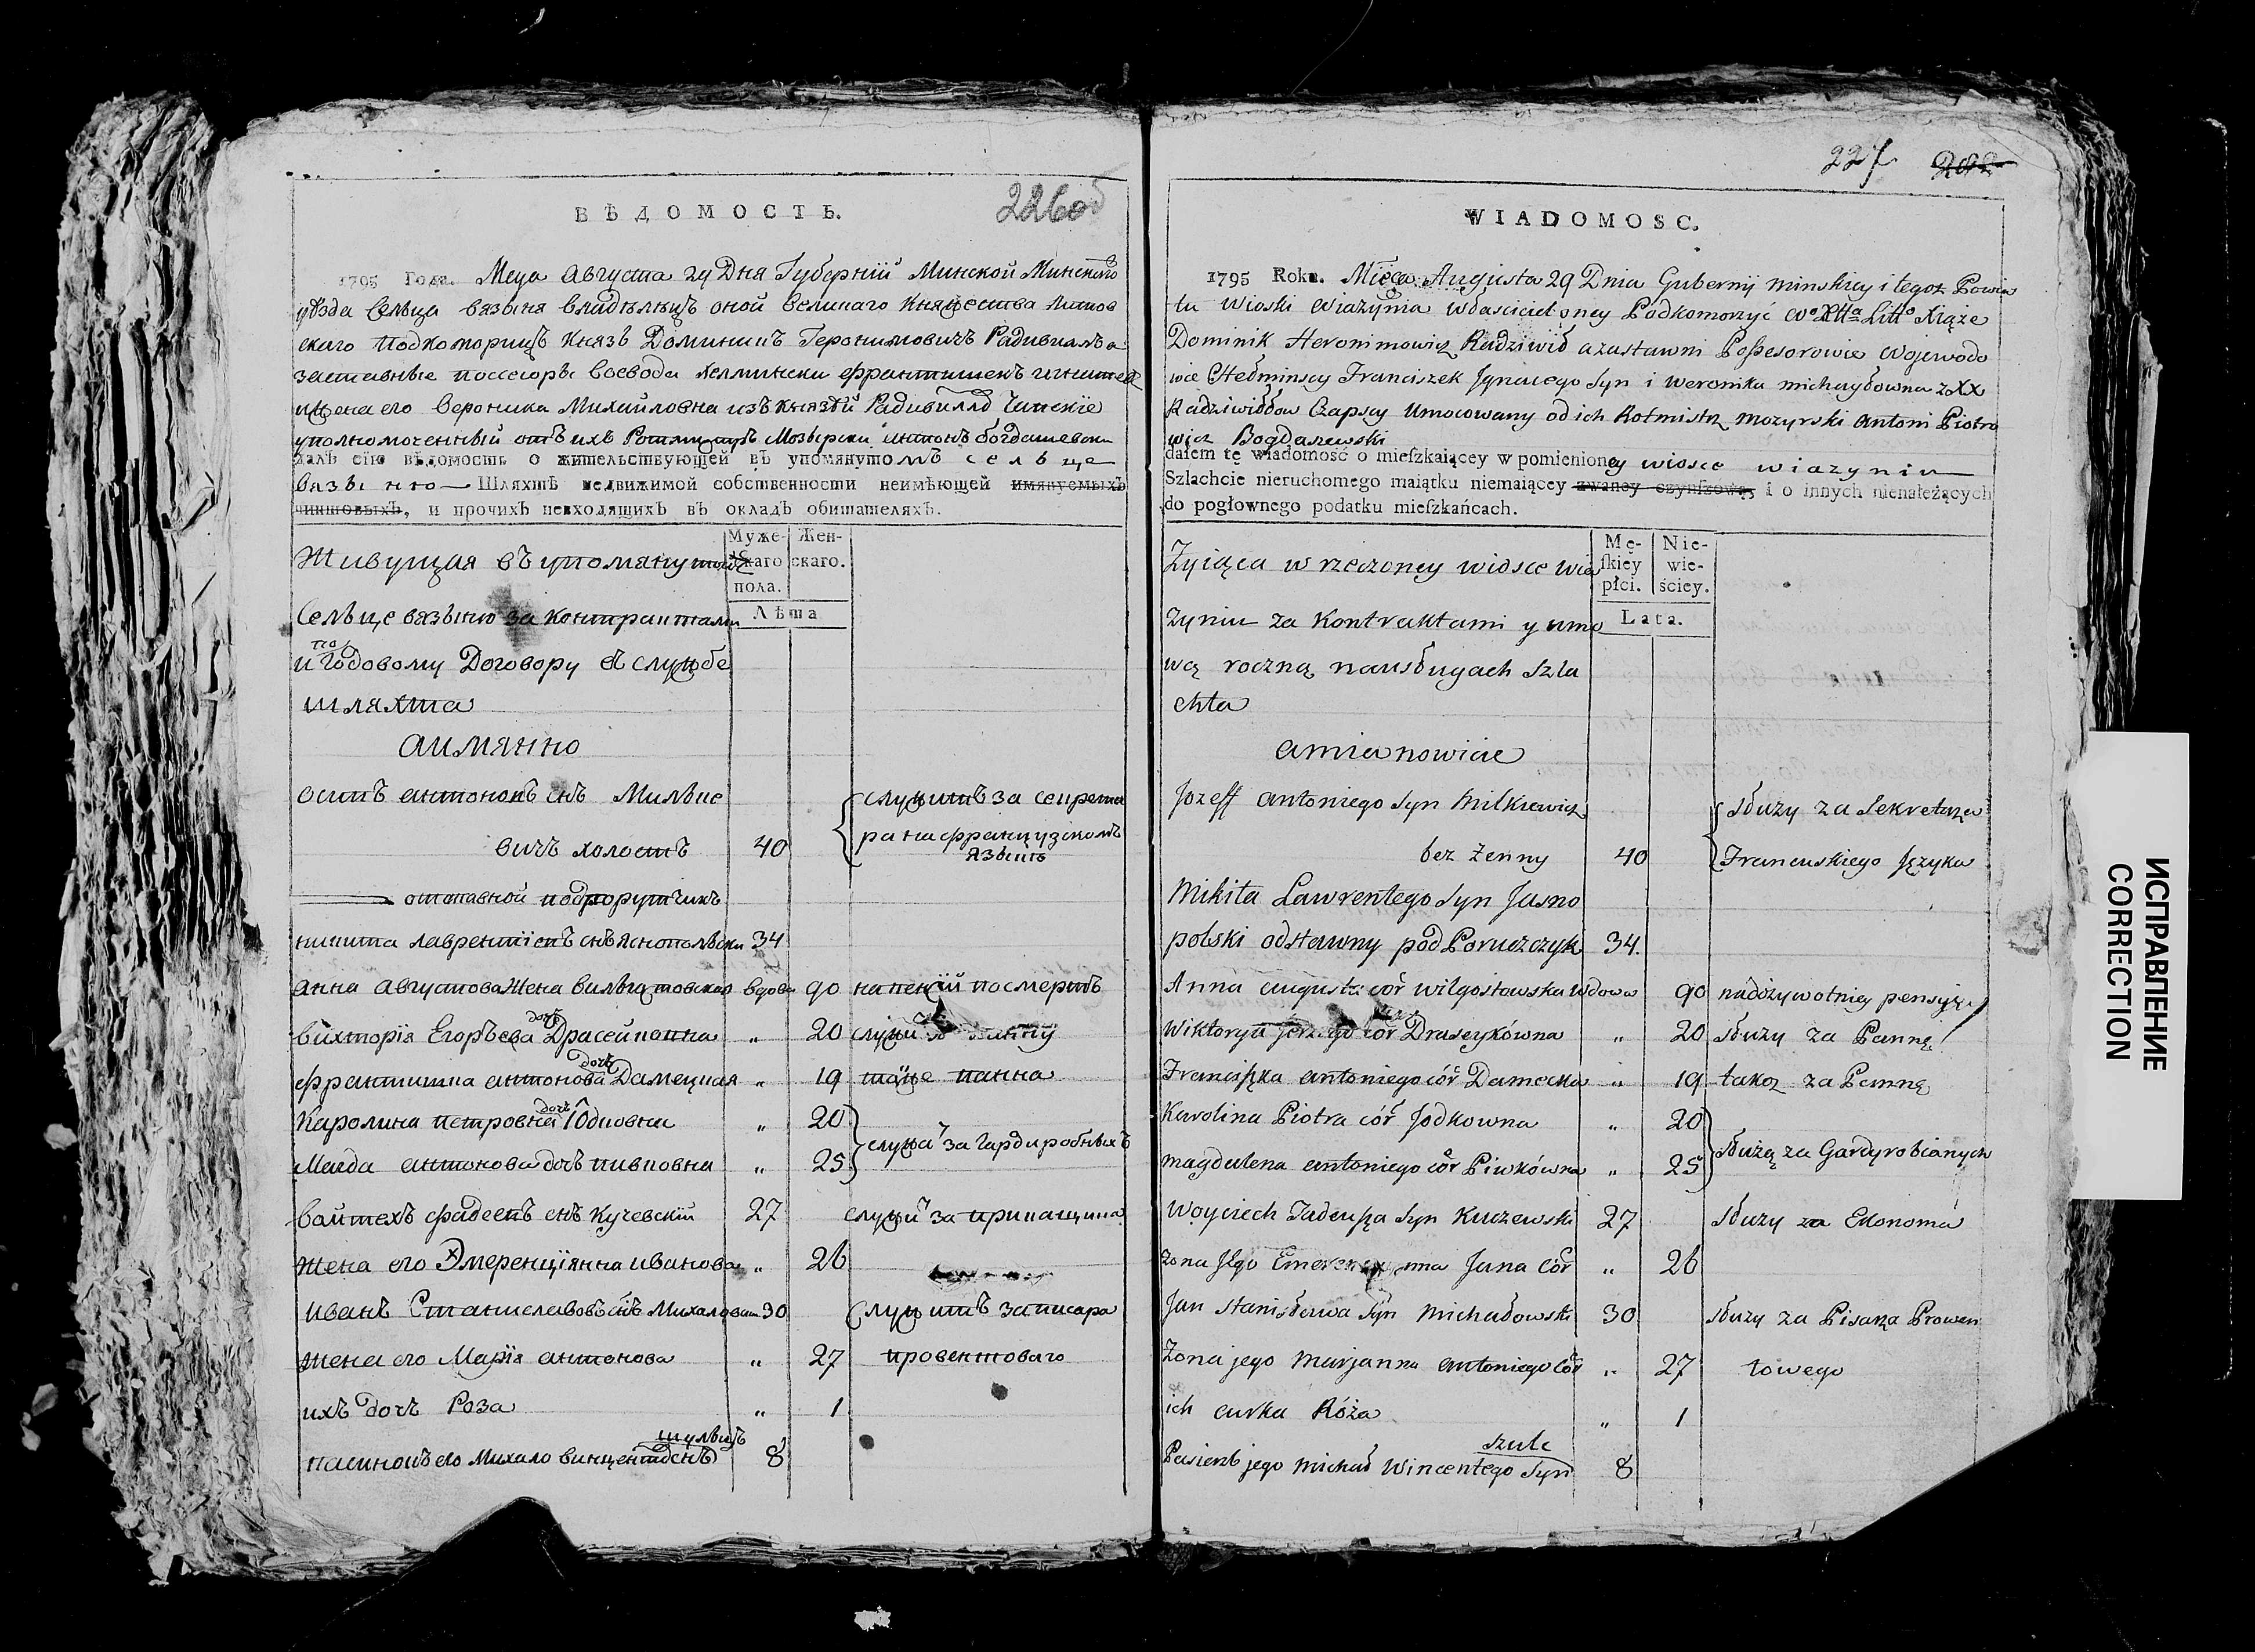 226об
ВѢДОМОСТЬ.
1795 Года. Меца Августа 29 Дня Губернiй Минской Минскаго
уѣзда Сельца вязыня владѣлецъ оной великаго Княжества литов
скаго Подкоморицъ Князь Доминикъ Геронимовичъ Радивилъ а
заставные поссесоры воевода хелмински францишекъ игнатев
и жена его вероника Михайловна изъ князей Радивиллъ Чапскiе
уполномоченный отъ ихъ Ротмистръ Мозырски антонъ богдашевски
далъ сiю вѣдомость о жительствующей въ упомянутомъ сельце
вязыню Шляхтѣ недвижимой собственности неимѣющей имянуемыхъ
чиншовыхъ, и прочихъ невходящихъ въ окладъ обитателяхъ.
Муже-скаго пола. Жен-скаго.
Лѣта
Живущая въ упомянутомъ
Сельце вязыню за контрактами
и по годовому Договору въ службе
шляхта
аимянно
осипъ антоновъ снъ Милке
вичъ холостъ 40 служитъ за секрета
ра на французскомъ
языке
отставной подпорутчикъ
никита лаврентiевъ снъ яснопольски 34
анна августова жена вильгостовская вдова 90 на пенсiй по смерть
викторiя Егорьева дочь Драсейковна „ 20
францишка антонова дочь Дамецкая „ 19 также панна
Каролина петровна дочь Юдковна „ 20
Магда антонова дочь пивковна „ 25 служа за гардиробныхъ
войтехъ фадеевъ снъ Кучевскiй 27 служи за прикащика
жена его Эмеренцiянна иванова „ 26
иванъ Станиславовъ снъ Михаловски 30 служитъ за писара
жена его Марiя антонова „ 27 провентоваго
ихъ дочъ Роза „ 1
шульцъ
пасинокъ его Михало винцентовъ снъ 8
227
WIADOMOSC.
1795 Roku. Mieca Augusta 29 Dnia Gubernij minskiey i tegoz Powia
tu Wioski Wiazynia właściciel oney Podkomorzyć Wo Xtta Litto Xiąże
Dominik Heronimowicz Radziwił a zastawni Possesorowie Wojewodo
wie Chełminscy Franciszek Jgnacego Syn i Weronika michayłowna z XX
Radziwiłłow Czapscy Umocowany od ich Rotmistrz mozyrski Antoni Piotro
wicz Bogdaszewski
dałem tę wiadomość o mieſzkaiącey w pomienioney wiosce wiazyniu
Szlachcie nieruchomego maiątku niemaiącey zwaney czynſzową i o innych nienależących
do pogłownego podatku mieſzkańcach.
Mę-ſkiey płci. Nie-wie-ściey.
Lata.
Zyiąca w rzeczoney wiosce wia
zyniu za Kontraktami y umo
wą roczną na usługach szla
chta
amianowicie
Jozeff antoniego Syn Milkiewicz służy za Sekretarza
bez żenny 40 Francuskiego Języka
Mikita Lawrentego Syn Jasno
polski odstawny pod Poruczczyk 34.
Anna augusta cór wilgostowska wdowa 90 na dożywotniey pensyi
Wiktorya Jerzego cór Draseykówna „ 20 służy za Pannę
Franciſzka antoniego cór Damecka „ 19 takoz za Pannę
Karolina Piotra cór Jodkowna „ 20
magdalena antoniego cór Piwkówna „ 25 służą za Gardyrobianych
Woyciech Tadeuſza Syn Kuczewski 27 służy za Ekonoma
żona Jego Emerencyanna Jana cór „ 26
Jan Stanisława Syn Michałowski 30 służy za Pisarza Prowen
Żona jego Marjanna antoniego cór „ 27 towego
ich curka Róża „ 1
szulc
Pasierb jego michał Wincentego Syn 8
ИСПРАВЛЕНИЕ
CORRECTION